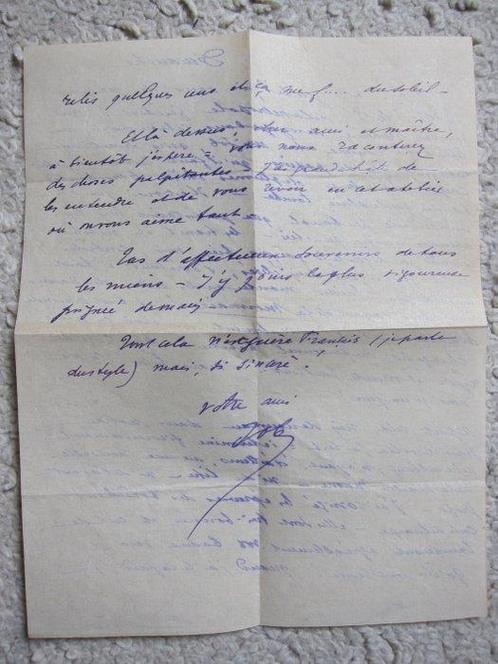 relis quelques uns et ça me f.... du soleil -
Et là dessus, cher ami et maître,
à bientôt j'espère, vous nous raconterez
des choses palpitantes. J'ai grand hâte de
les entendre et de vous revoir en cet atelier
où nous aime tant.
Tas d'affectueux souvenirs de tous
les miens - J'y joins la plus vigoureuse
poignée de main
Tout cela n'est guère Français (je parle
du style) mais, si sincère.
votre ami